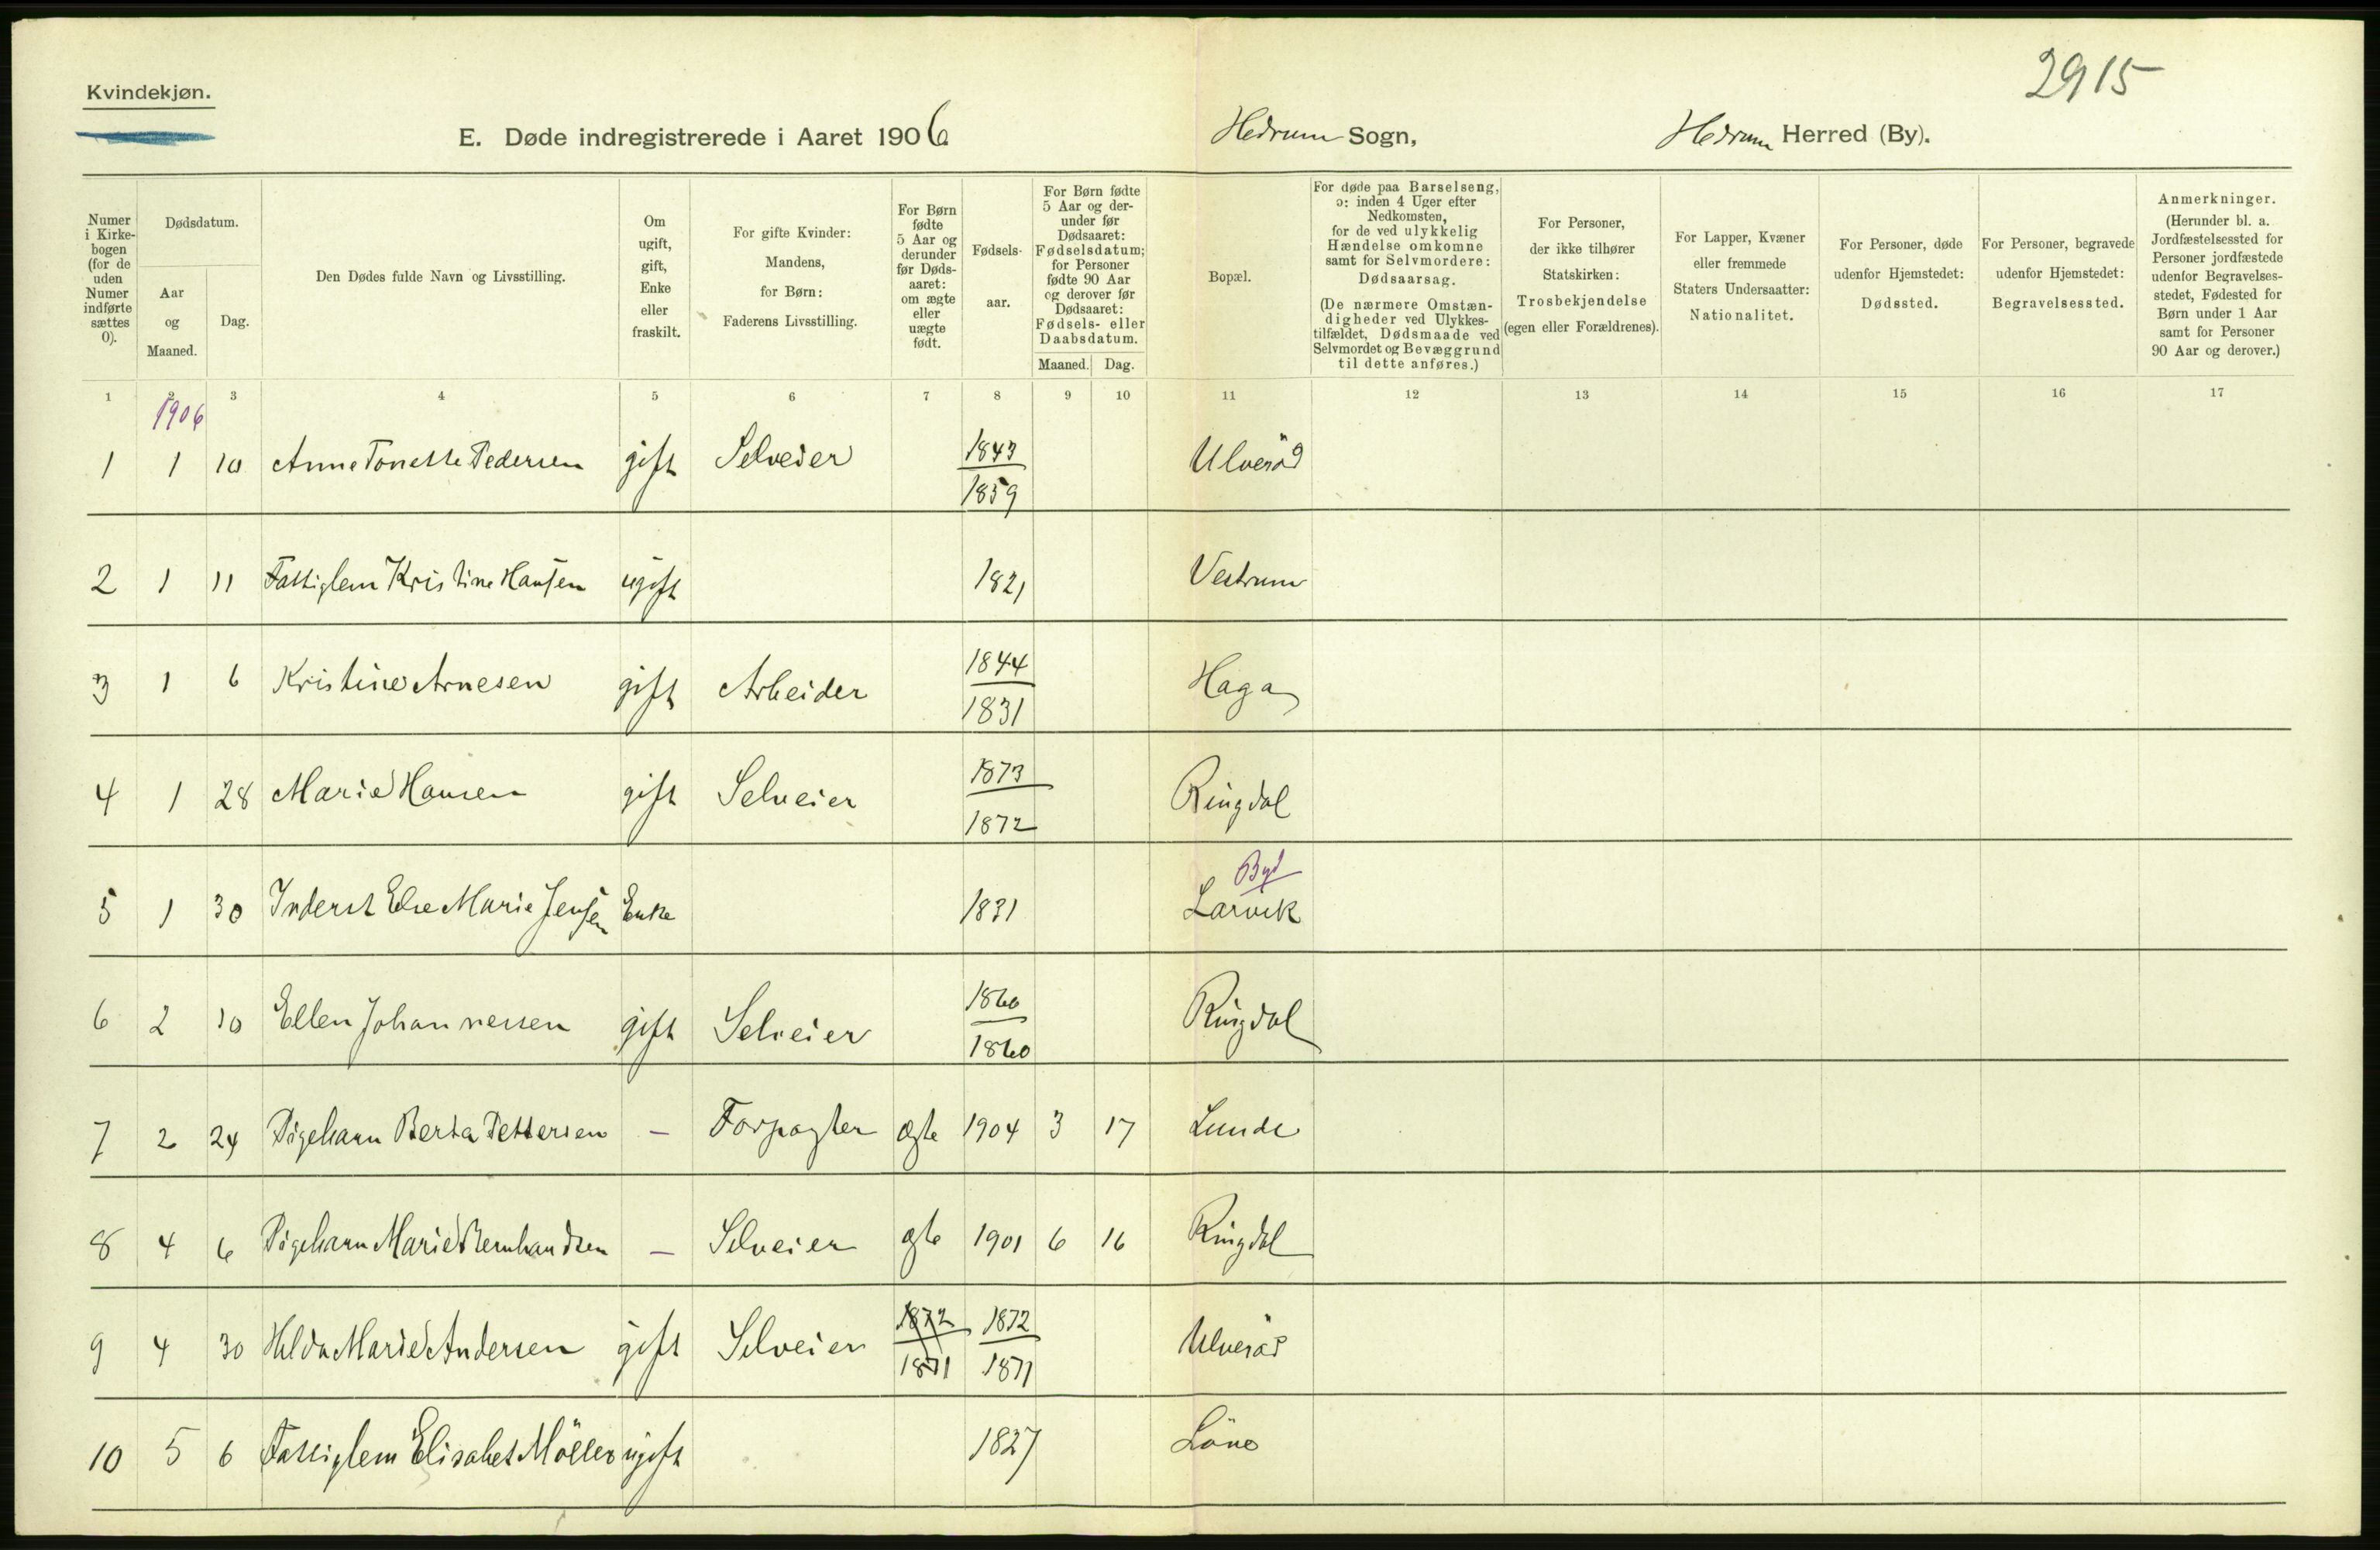 2915
Kvindekjøn.
E. Døde indregistrerede i Aaret 1906 Hedrum Sogn, Hedrum Herred (By).
Numer i Kirkebogen (for de uden Numer indførte sættes 0).
Dødsdatum.
Aar og Maaned.
Dag.
Den Dødes fulde Navn og Livsstilling.
Om ugift, gift, Enke eller fraskilt.
For gifte Kvinder: Mandens, for Børn: Faderens Livsstilling.
For Børn fødte 5 Aar og derunder før Dødsaaret: om ægte eller uægte født.
Fødselsaar.
For Børn fødte 5 Aar og derunder før Dødsaaret: Fødselsdatum; for Personer fødte 90 Aar og derover før Dødsaaret: Fødsels- eller Daabsdatum.
Maaned. Dag.
Bopæl.
For døde paa Barselseng, ɔ: inden 4 Uger efter Nedkomsten, for de ved ulykkelig Hændelse omkomne samt for Selvmordere: Dødsaarsag. (De nærmere Omstændigheder ved Ulykkestilfældet, Dødsmaade ved Selvmordet og Bevæggrund til dette anføres.)
For Personer, der ikke tilhører Statskirken: Trosbekjendelse (egen eller Forældrenes).
For Lapper, Kvæner eller fremmede Staters Undersaatter: Nationalitet.
For Personer, døde udenfor Hjemstedet: Dødssted.
For Personer, begravede udenfor Hjemstedet: Begravelsessted.
Anmerkninger. (Herunder bl. a. Jordfæstelsessted for Personer jordfæstede udenfor Begravelsesstedet, Fødested for Børn under 1 Aar samt for Personer 90 Aar og derover.)
1 2 3 4 5 6 7 8 9 10 11 12 13 14 15 16 17
1906
1 1 10 Anne Tonette Pedersen gift Selveier 1843 1859 Ulverød
2 1 11 Fattiglem Kristine Hansen ugift 1821 Vestrum
3 1 6 Kristine Arnesen gift Arbeider 1844 1831 Haga
4 1 28 Marie Hansen gift Selveier 1873 1872 Ringdal
Byd
5 1 30 Inderst Else Marie Jensen Enke 1831 Larvik
6 2 10 Ellen Johannessen gift Selveier 1860 1860 Ringdal
7 2 24 Pigebarn Berta Pettersen – Forpagter ægte 1904 3 17 Lunde
8 4 6 Pigebarn Marie Bernhardsen – Selveier ægte 1901 6 16 Ringdal
9 4 30 Hilda Marie Andersen gift Selveier 1872 1871 1872 1871 Ulverød
10 5 6 Fattiglem Elisabet Möller ugift 1827 Löve